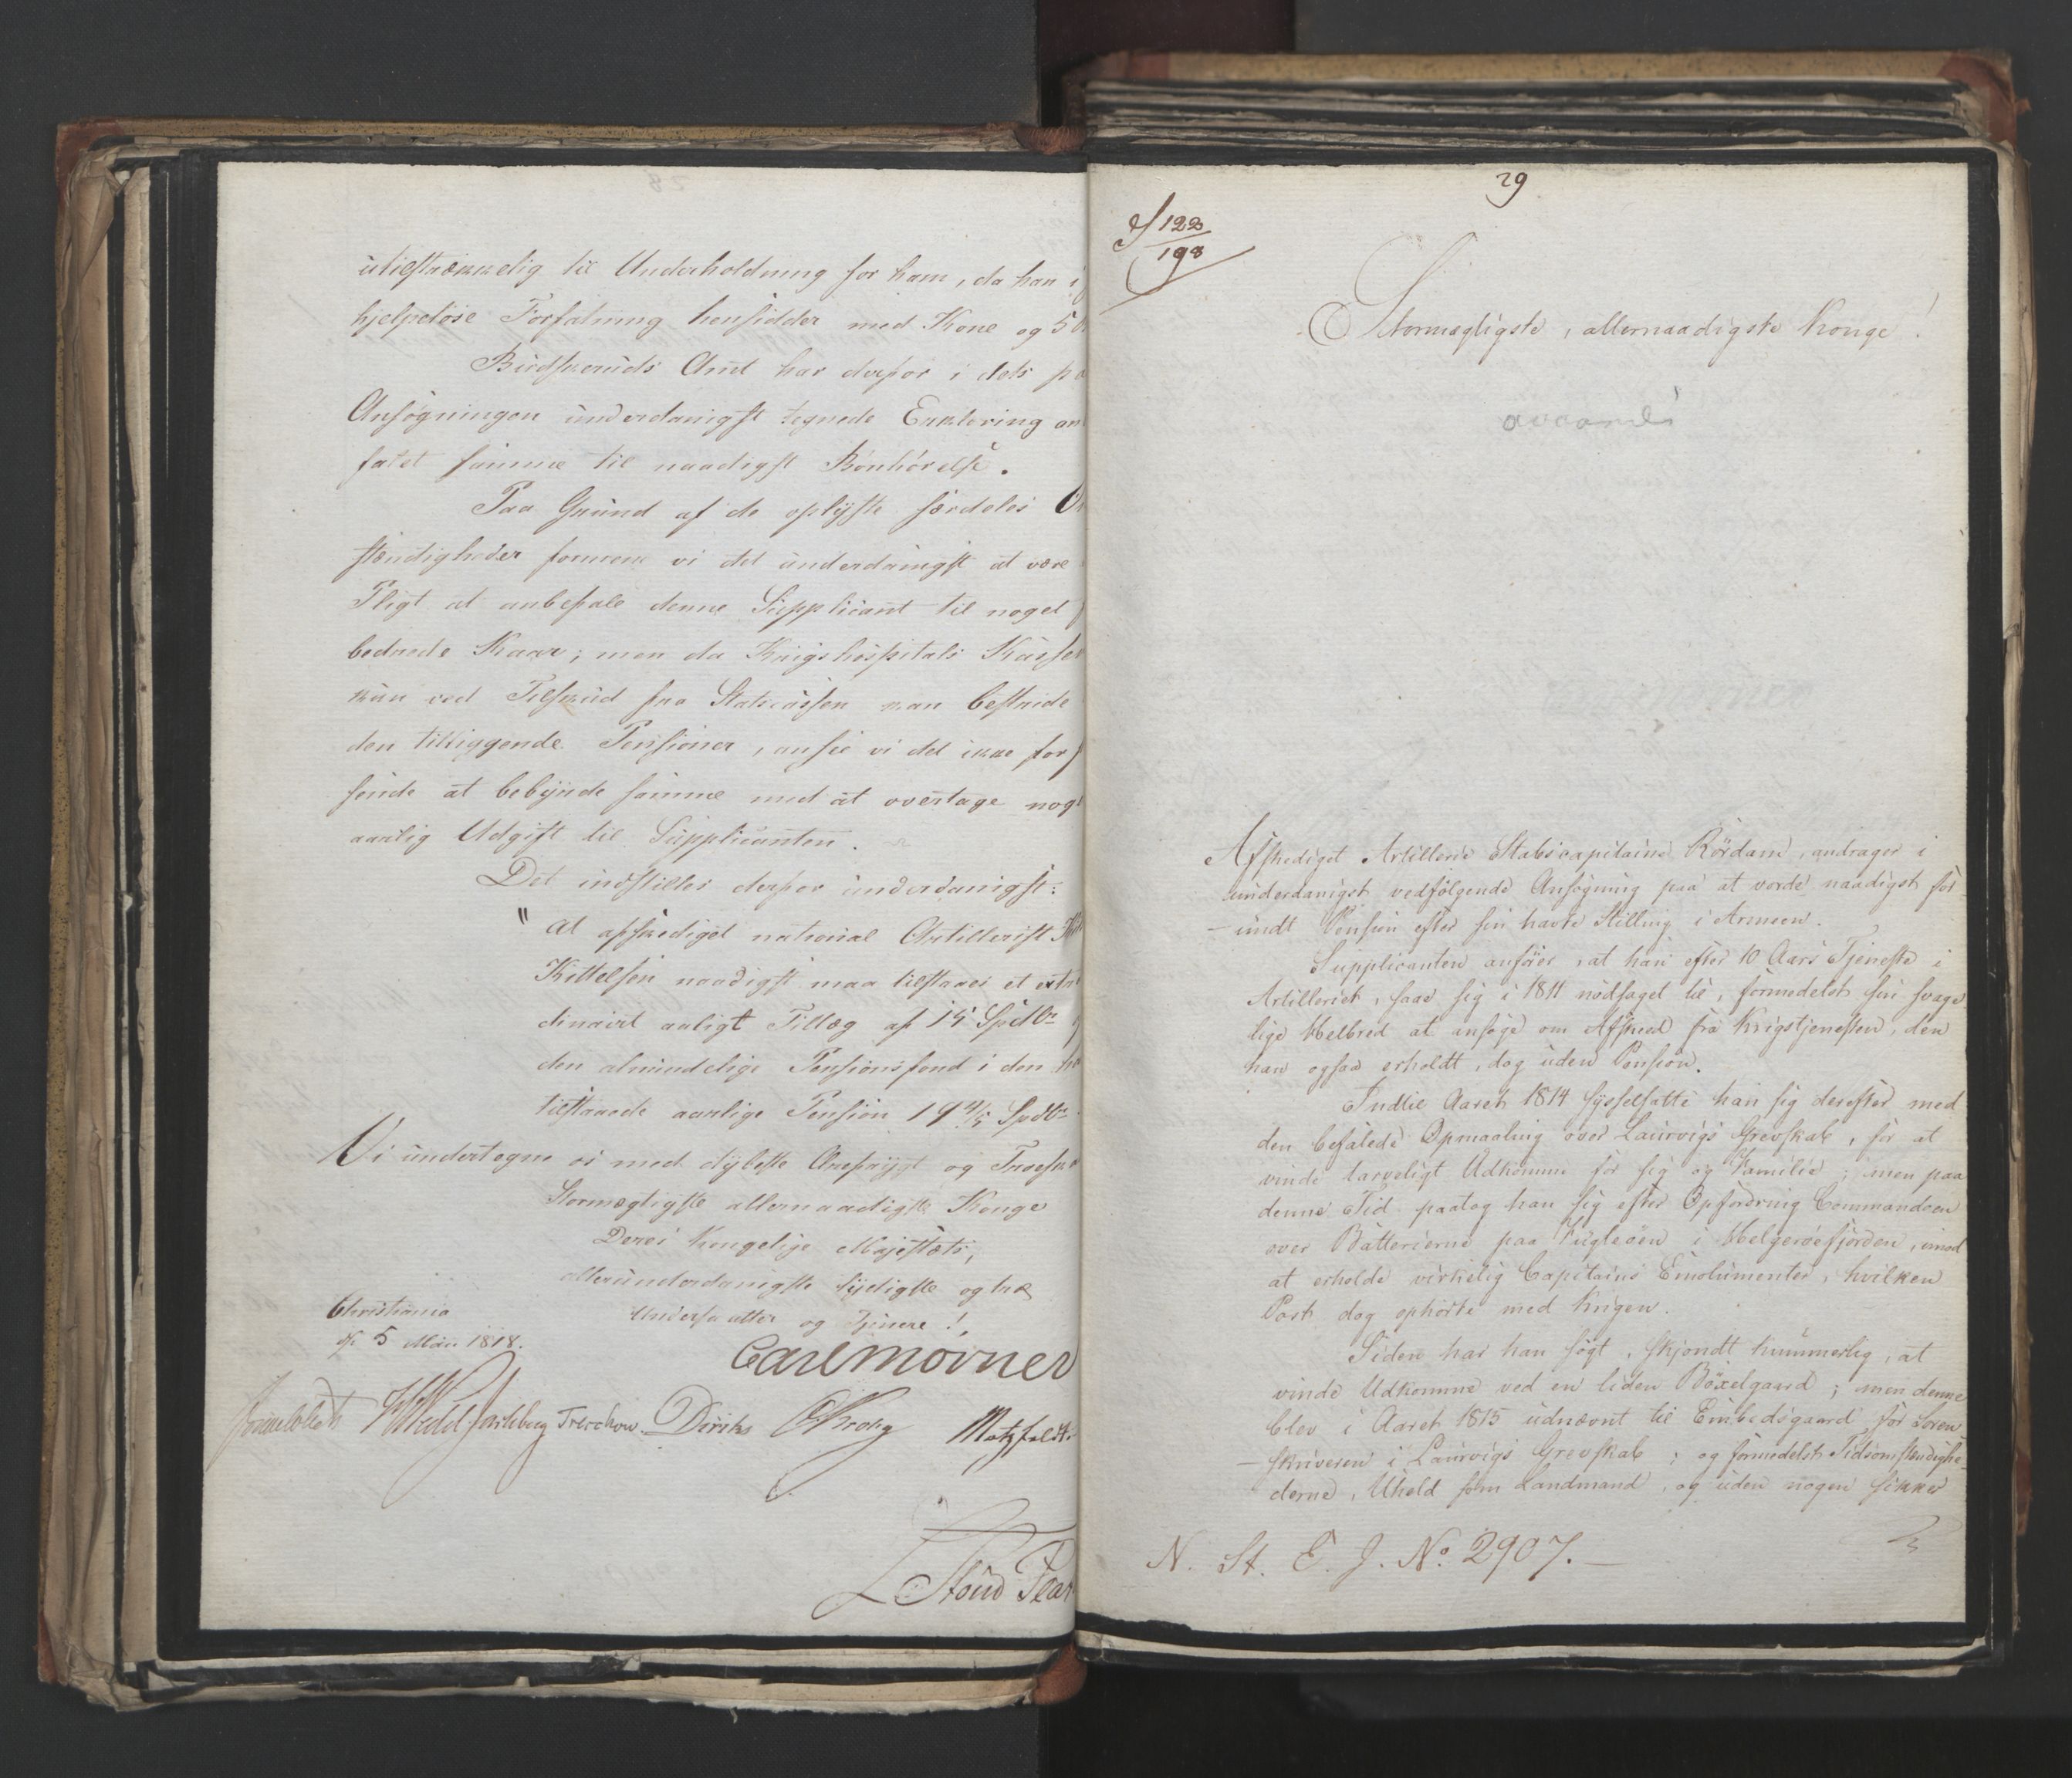 utilstrækkelig til Underholdning for ham, da han i
hjelpeløse Forfatning hensidder med Kone og 5
Budskeruds Amt har derfor i dets
Ansøgningen underdanigst tegnede Erklæring an
falet samme til naadigst Bønhørelse.
Paa Grund af de oplyste særdeles
stændigheder formene vi det underdanigst at være
Pligt at anbefale denne Supplicant til noget
bedrede Kaar; men da Krigshospitals Kassen
kun ved Tilskud fra Statscassen kan bestride
den tilliggende Pensioner, ansee vi det ikke for
sende at bebyrde samme med at overtage noge
aarlig Udgift til Supplicanten.
Det indstilles derfor underdanigst:
" at afskediget national Artillerist
Kittelsen naadigst maa tilstaaes et extra
dinairt aarligt Tillæg af 15 Spdlr
den almindelige Pensionsfond i den
tilstaaede aarlige Pension 19 4/5 Spdlr
Vi undertegne os med dybeste Ærefrygt og Troeska
Stormægtigste allernaadigste Konge
Deres Kongelige Majestæts,
allerunderdanigste lydigste og troe
Undersaatter og Tjenere!
Christiania
d 5 Mai 1818.
Carl Mörner
Sommerhielm HWedel Jarlsberg Treschow. Diriks CKrohg Motzfeldt.
29
122
198
Stormægtigste, allernaadigste Konge!
Afskediget Artillerie Stabscapitaine Rørdam, andrager i
underdanigst vedfølgende Ansøgning paa at vorde naadigst for
- undt Pension efter sin havte Stilling i Armeen.
Supplicanten anfører, at han efter 10 Aars Tjeneste i
Artilleriet, saae sig i 1811 nødsaget til, formedelst sin svage
lige Helbred at ansøge om Afsked fra Krigstjenesten, den
han ogsaa erholdt, dog uden Pension.
Indtil Aaret 1814 sysselsatte han sig derefter med
den befalede Opmaaling over Laurvigs Grevskab, for at
vinde tarveligt Udkomme for sig og Familie; men paa
denne Tid paatog han sig efter Opfordring Commandoen
over Batterierne paa Fugleöen i Helgeröefjorden, imod
at erholde virkelig Capitains Emolumenter, hvilken
Post dog ophørte med Krigen.
Siden har han søgt, skjøndt kummerlig, at
vinde Udkomme ved en liden Böxelgaard; men denne
blev i Aaret 1815 udnævnt til Embedsgaard for Soren-
- skriveren i Laurvigs Grevskab; og formedelst Tidsomstændighe-
derne, Uheld som Landmand, og uden nogen sikker
N. St. E. J. No. 2907.-